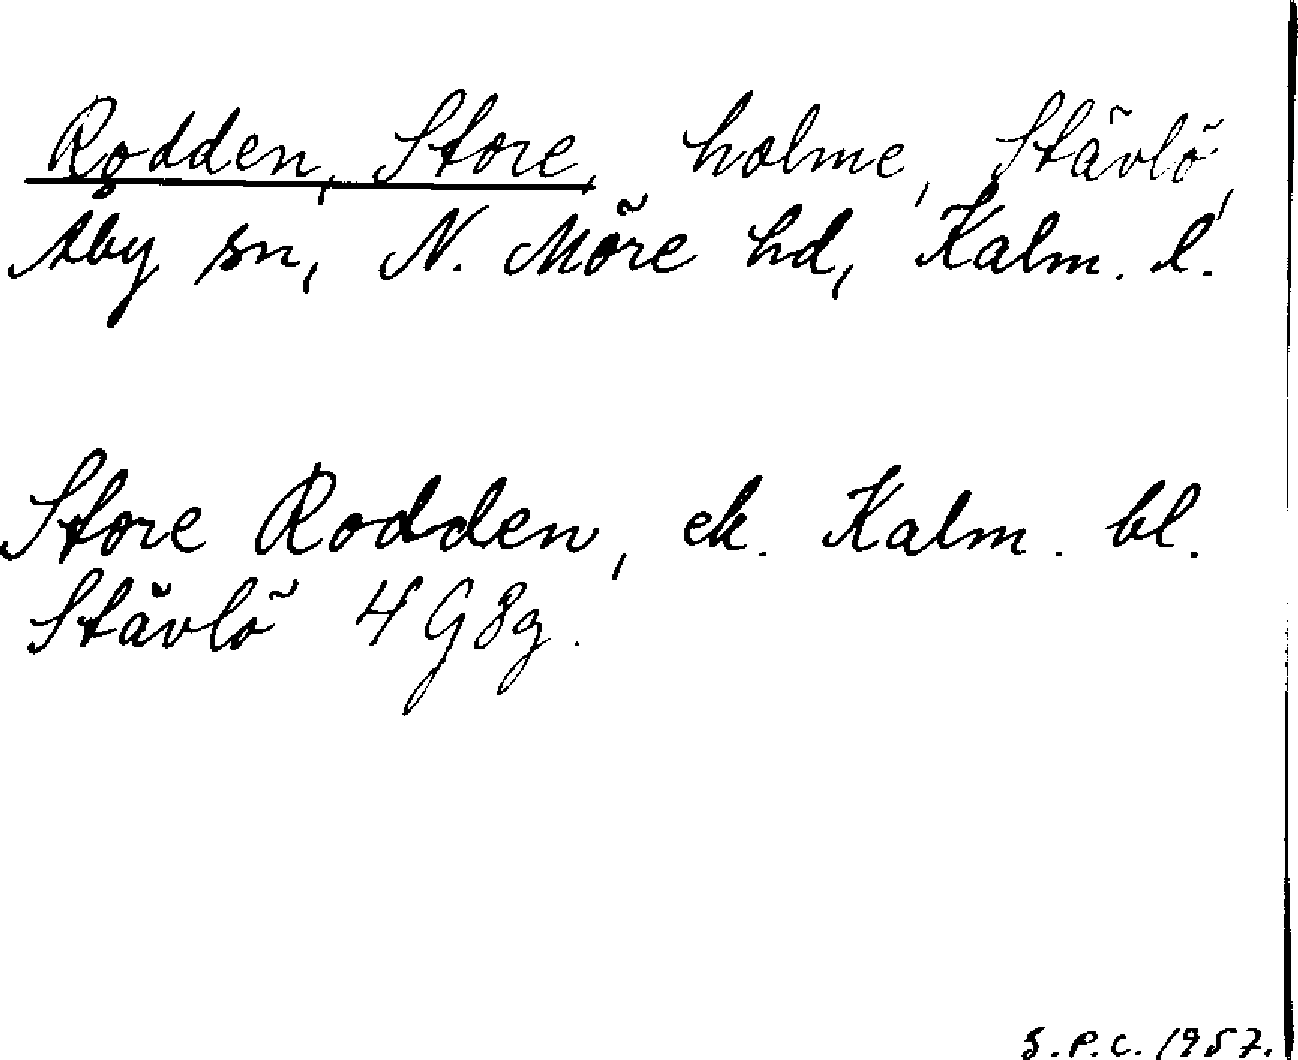 Rodden, Store, holme, Stävlö,
Åby sn, N. Möre hd, Kalm. l.
Store Rodden, ek. Kalm. bl.
Stävlö 4G8g.
S.P.C. 1957.